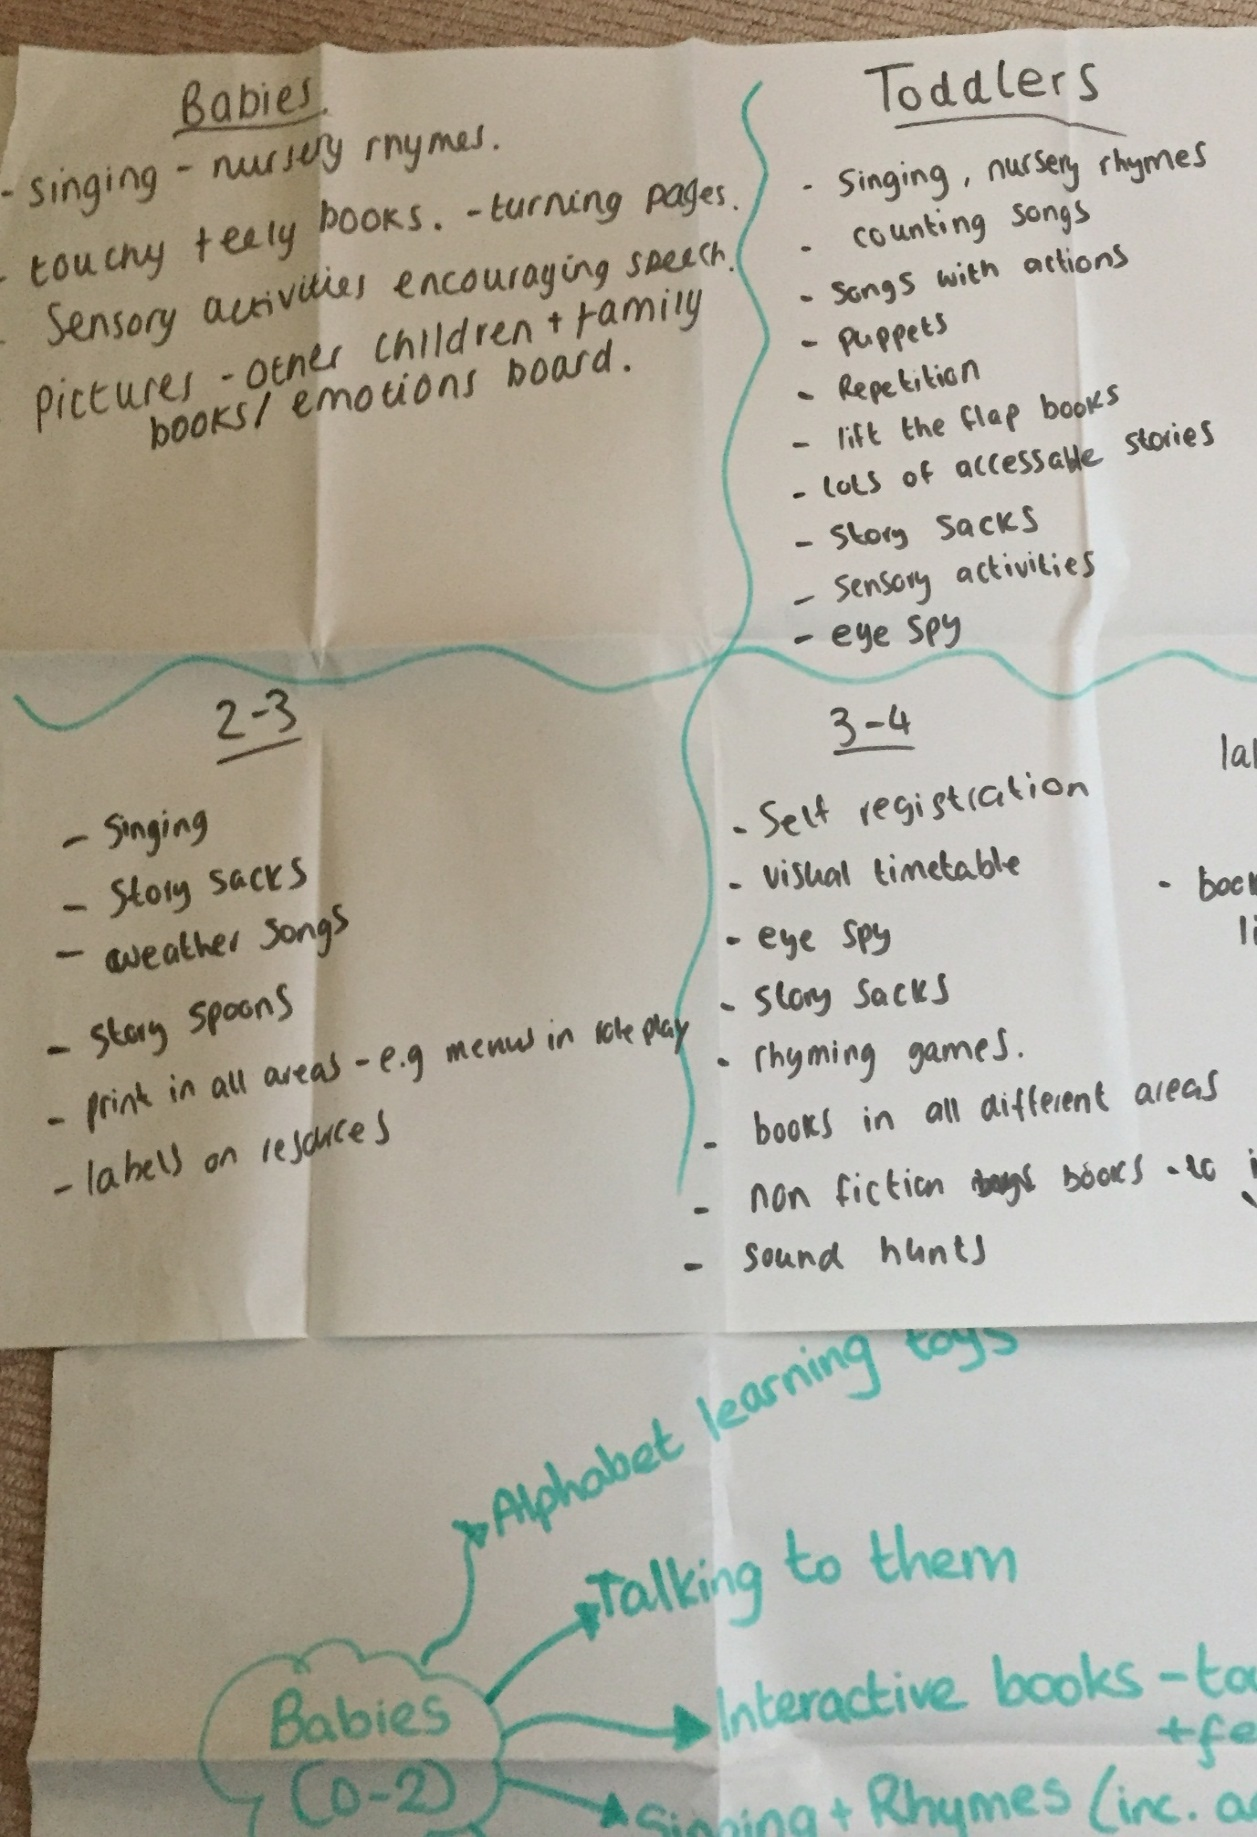 Babies.
- singing - nursery rhymes.
- touchy feely books. - turning pages.
- Sensory activities encouraging speech.
Pictures - other children + family
books/ emotions board.
Toddlers
- Singing, nursery rhymes
- counting songs
- songs with actions
- puppets
- Repetition
- lift the flap books
- lots of accessable stories
- Story sacks
- Sensory activities
- eye spy
2-3
- Singing
- Story sacks
- weather songs
- story spoons
- print in all areas - e.g menus in role play
- labels on resources
3-4
- Self registration
- visual timetable
- eye spy
- story sacks
- rhyming games.
- books in all different areas
- non fiction books - to
- sound hunts
Alphabet learning toys
Talking to them
Interactive books -
Babies
(0-2)
Singing + Rhymes (inc.